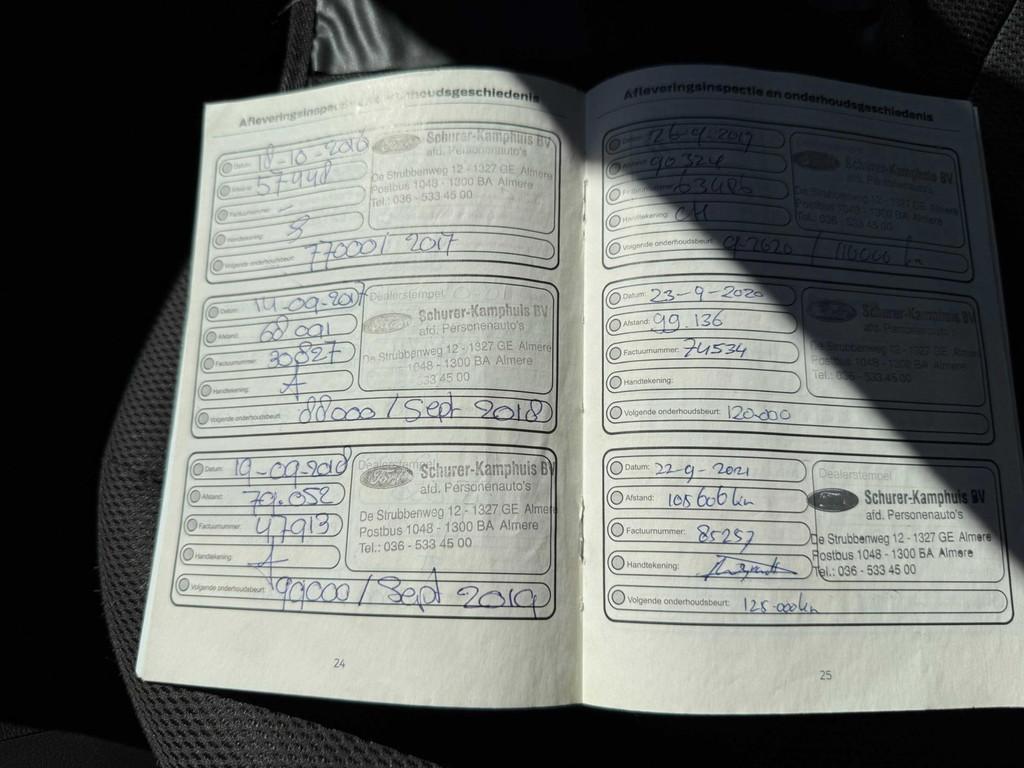 Afleveringsinspectie en onderhoudsgeschiedenis
Datum: 18-10-2016
Afstand: 57448
Factuurnummer: -
Handtekening:
Volgende onderhoudsbeurt: 77000 / 2017
Ford Schurer-Kamphuis BV
afd. Personenauto's
De Strubbenweg 12 - 1327 GE Almere
Postbus 1048 - 1300 BA Almere
Tel.: 036 - 533 45 00
Datum: 14-09-2017
Afstand: 68091
Factuurnummer: 30827
Handtekening:
Volgende onderhoudsbeurt: 88000 / Sept 2018
Dealerstempel
Schurer-Kamphuis BV
afd. Personenauto's
De Strubbenweg 12 - 1327 GE Almere
1048 - 1300 BA Almere
33 45 00
Datum: 19-09-2018
Afstand: 79.052
Factuurnummer: 47913
Handtekening:
Volgende onderhoudsbeurt: 99000 / Sept 2019
Dealerstempel
Ford Schurer-Kamphuis BV
afd. Personenauto's
De Strubbenweg 12 - 1327 GE Almere
Postbus 1048 - 1300 BA Almere
Tel.: 036 - 533 45 00
24
Afleveringsinspectie en onderhoudsgeschiedenis
Datum: 26-9-2019
Afstand: 90324
Factuurnummer: 63486
Handtekening: CH
Volgende onderhoudsbeurt: 9-2020 / 110000 km
Schurer-Kamphuis BV
afd. Personenauto's
De Strubbenweg 12 - 1327 GE Almere
Postbus 1048 - 1300 BA Almere
Tel.: 036 - 533 45 00
Datum: 23-9-2020
Afstand: 99.136
Factuurnummer: 74534
Handtekening:
Volgende onderhoudsbeurt: 120.000
Schurer-Kamphuis BV
afd. Personenauto's
De Strubbenweg 12 - 1327 GE Almere
Postbus 1048 - 1300 BA Almere
Tel.: 036 - 533 45 00
Datum: 22-9-2021
Afstand: 105606 km
Factuurnummer: 85257
Handtekening:
Volgende onderhoudsbeurt: 125.000 km
Dealerstempel
Schurer-Kamphuis BV
afd. Personenauto's
De Strubbenweg 12 - 1327 GE Almere
Postbus 1048 - 1300 BA Almere
Tel.: 036 - 533 45 00
25